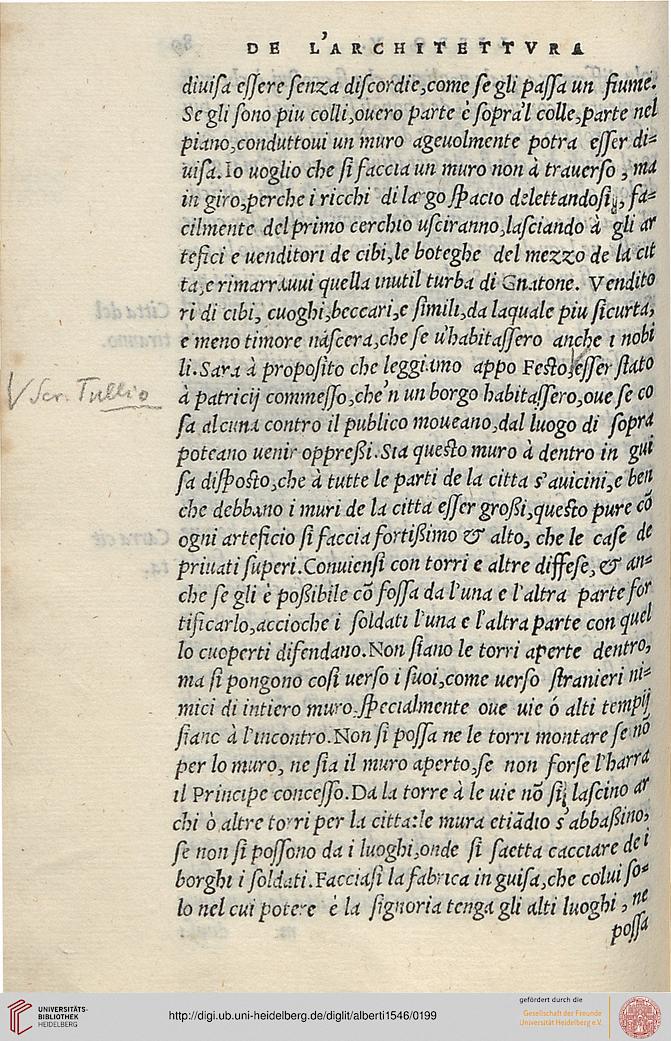 DE L'ARCHITETTVRA
diuiſa eſſere ſenza diſcordie,come ſe gli paſſa un fiume.
Se gli ſono piu colli,ouero parte è ſopra'l colle,parte nel
piano,conduttoui un muro ageuolmente potra eſſer di=
uiſa.Io uoglio che ſi faccia un muro non à trauerſo , ma
in giro,perche i ricchi di largo ſpacio delettandoſi, fa=
cilmente del primo cerchio uſciranno,laſciando à gli ar
tefici e uenditori de cibi,le boteghe del mezzo de la cit
ta,e rimarrauui quella inutil turba di Gnatone. Vendito
ri di cibi, cuoghi,beccari,e ſimili,da laquale piu ſicurta,
e meno timore naſcera,che ſe u'habitaſſero anche i nobi
li.Sara à propoſito che leggiamo appo Feſto,eſſer ſtato
V Ser. Tullio
à patricij commeſſo,che'n un borgo habitaſſero,oue ſe co
ſa alcuna contro il publico moueano,dal luogo di ſopra
poteano uenir oppreßi.Sia queſto muro à dentro in gui
ſa diſpoſto,che à tutte le parti de la citta s'auicini,e ben
che debbano i muri de la citta eſſer großi,queſto pure cõ
ogni arteficio ſi faccia fortißimo & alto, che le caſe de
priuati ſuperi.Conuienſi con torri e altre diffeſe,& an=
che ſe gli è poßibile cõ foſſa da l'una e l'altra parte for
tificarlo,accioche i ſoldati l'una e l'altra parte con quel
lo cuoperti difendano.Non ſiano le torri aperte dentro,
ma ſi pongono coſi uerſo i ſuoi,come uerſo ſtranieri ni=
mici di intiero muro.ſpecialmente oue uie ó alti tempij
ſiano à l'incontro.Non ſi poſſa ne le torri montare ſe nõ
per lo muro, ne ſia il muro aperto,ſe non forſe l'harra
il Principe conceſſo.Da la torre à le uie nõ ſi laſcino ar
chi ò altre torri per la citta:le mura etiãdio s'abbaßino,
ſe non ſi poſſono da i luoghi,onde ſi ſaetta cacciare de i
borghi i ſoldati.Facciaſi la fabrica in guiſa,che colui ſo=
lo nel cui potere è la ſignoria tenga gli alti luoghi , ne
poſſa
UNIVERSITÄTS-
BIBLIOTHEK
HEIDELBERG
http://digi.ub.uni-heidelberg.de/diglit/alberti1546/0199
gefördert durch die
Gesellschaft der Freunde
Universität Heidelberg e.V.